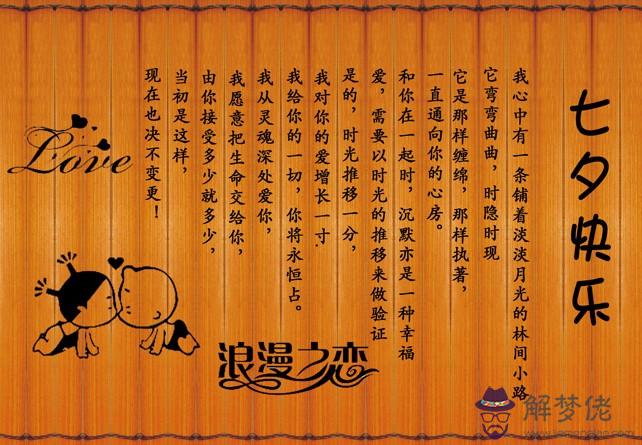 七夕快乐
我心中有一条铺着淡淡月光的林间小路
它弯弯曲曲，时隐时现
它是那样缠绵，那样执著，
一直通向你的心房。
和你在一起时，沉默亦是一种幸福
爱，需要以时光的推移来做验证
是的，时光推移一分，
我对你的爱增长一寸.
我给你的一切，你将永恒占。
我从灵魂深处爱你，
我愿意把生命交给你，
由你接受多少就多少，
当初是这样，
现在也决不变更！
Love
浪漫之恋
解梦佬